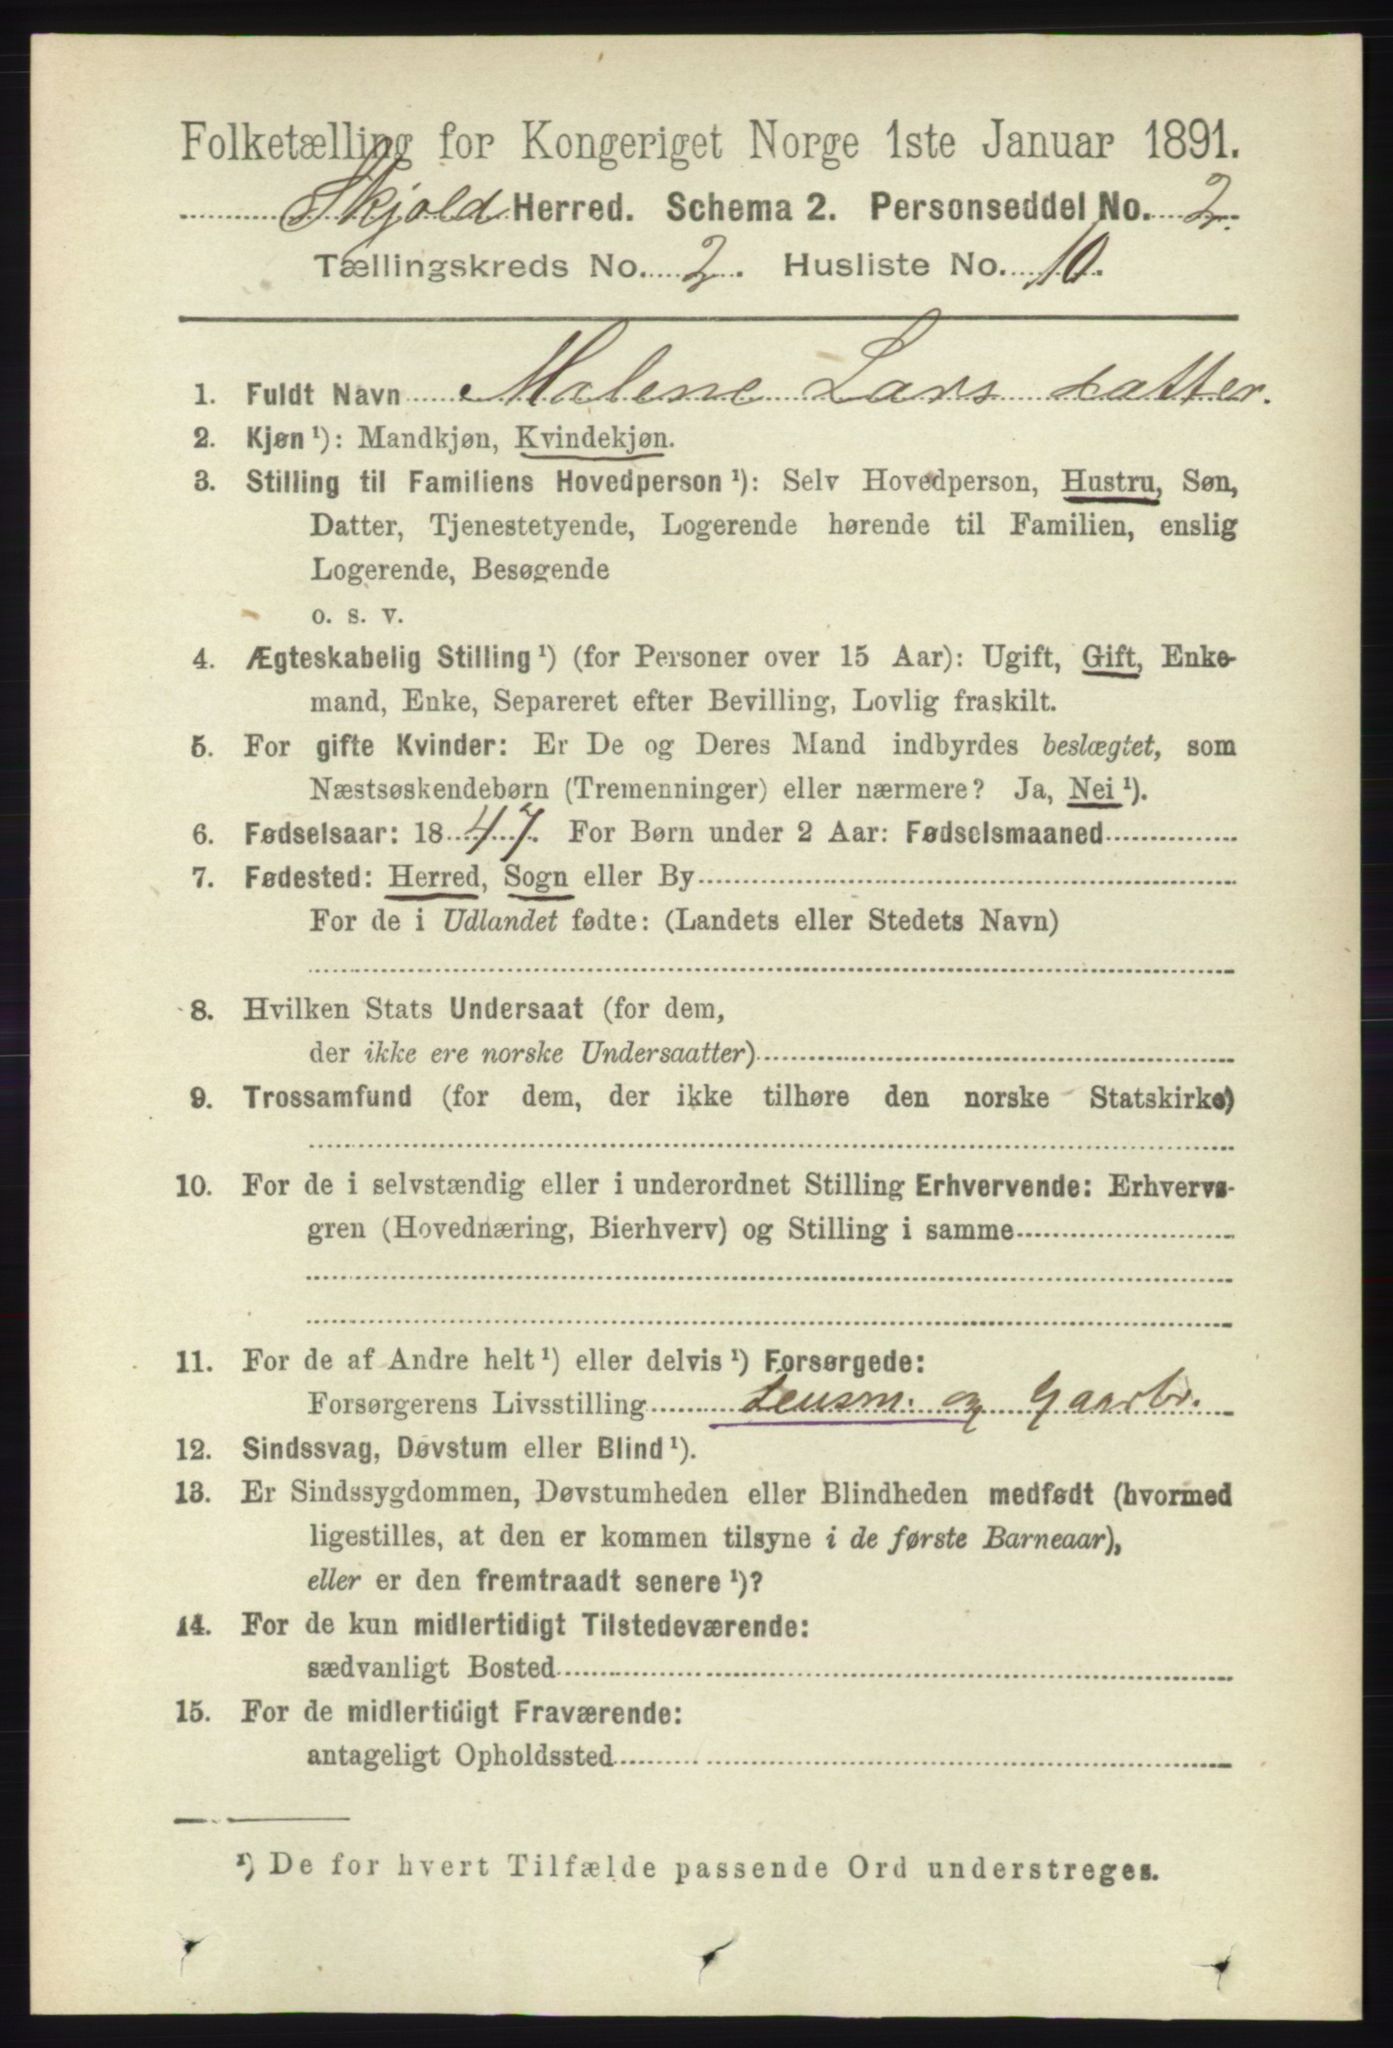 Folketælling for Kongeriget Norge 1ste Januar 1891.
Skjold Herred. Schema 2. Personseddel No. 2.
Tællingskreds No. 2. Husliste No. 10.
1. Fuldt Navn Malene Lars datter.
2. Kjøn ¹): Mandkjøn, Kvindekjøn.
3. Stilling til Familiens Hovedperson ¹): Selv Hovedperson, Hustru, Søn,
Datter, Tjenestetyende, Logerende hørende til Familien, enslig
Logerende, Besøgende
o. s. v.
4. Ægteskabelig Stilling ¹) (for Personer over 15 Aar): Ugift, Gift, Enke-
mand, Enke, Separeret efter Bevilling, Lovlig fraskilt.
5. For gifte Kvinder: Er De og Deres Mand indbyrdes beslægtet, som
Næstsøskendebørn (Tremenninger) eller nærmere? Ja, Nei ¹).
6. Fødselsaar: 1847. For Børn under 2 Aar: Fødselsmaaned
7. Fødested: Herred, Sogn eller By
For de i Udlandet fødte: (Landets eller Stedets Navn)
8. Hvilken Stats Undersaat (for dem,
der ikke ere norske Undersaatter)
9. Trossamfund (for dem, der ikke tilhøre den norske Statskirke)
10. For de i selvstændig eller i underordnet Stilling Erhvervende: Erhvervs-
gren (Hovednæring, Bierhverv) og Stilling i samme
11. For de af Andre helt ¹) eller delvis ¹) Forsørgede:
Forsørgerens Livsstilling Lensm. og Gaarbr.
12. Sindssvag, Døvstum eller Blind ¹).
13. Er Sindssygdommen, Døvstumheden eller Blindheden medfødt (hvormed
ligestilles, at den er kommen tilsyne i de første Barneaar),
eller er den fremtraadt senere ¹)?
14. For de kun midlertidigt Tilstedeværende:
sædvanligt Bosted
15. For de midlertidigt Fraværende:
antageligt Opholdssted
¹) De for hvert Tilfælde passende Ord understreges.